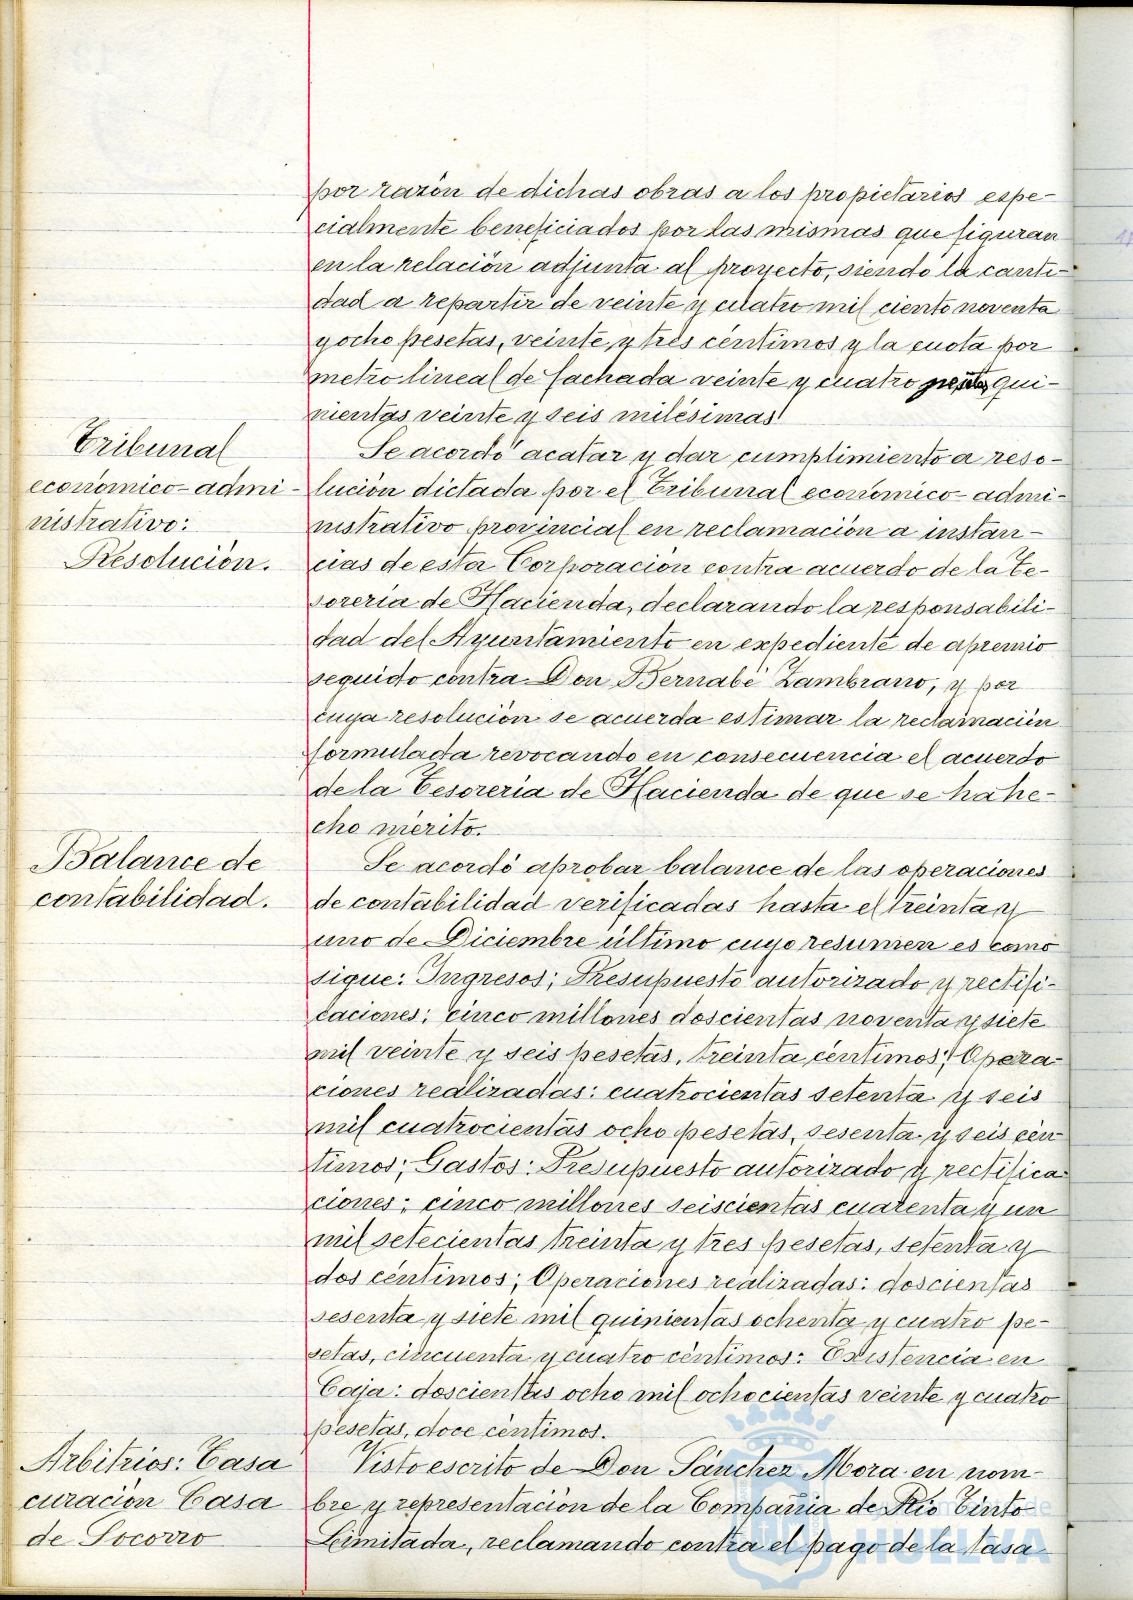 por razón de dichas obras a los propietarios espe-
cialmente beneficiados por las mismas que figuran
en la relación adjunta al proyecto, siendo la canti-
dad a repartir de veinte y cuatro mil ciento noventa
y ocho pesetas, veinte y tres céntimos y la cuota por
metro lineal de fachada veinte y cuatro pesetas qui-
nientas veinte y seis milésimas.
Tribunal
económico-admi-
nistrativo:
Resolución.
Se acordó acatar y dar cumplimiento a reso-
lución dictada por el Tribunal económico-admi-
nistrativo provincial en reclamación a instan-
cias de esta Corporación contra acuerdo de la Te-
sorería de Hacienda, declarando la responsabili-
dad del Ayuntamiento en expediente de apremio
seguido contra Don Bernabé Zambrano, y por
cuya resolución se acuerda estimar la reclamación
formulada revocando en consecuencia el acuerdo
de la Tesorería de Hacienda de que se ha he-
cho mérito.
Balance de
contabilidad.
Se acordó aprobar balance de las operaciones
de contabilidad verificadas hasta el treinta y
uno de Diciembre último cuyo resumen es como
sigue: Ingresos; Presupuesto autorizado y rectifi-
caciones; cinco millones doscientas noventa y siete
mil veinte y seis pesetas, treinta céntimos; Opera-
ciones realizadas: cuatrocientas setenta y seis
mil cuatrocientas ocho pesetas, sesenta y seis cén-
timos; Gastos: Presupuesto autorizado y rectifica-
ciones; cinco millones seiscientas cuarenta y un
mil setecientas treinta y tres pesetas, setenta y
dos céntimos; Operaciones realizadas: doscientas
sesenta y siete mil quinientas ochenta y cuatro pe-
setas, cincuenta y cuatro céntimos: Existencia en
Caja: doscientas ocho mil ochocientas veinte y cuatro
pesetas, doce céntimos.
Arbitrios: Tasa
curación Casa
de Socorro
Visto escrito de Don Sánchez Mora en nom-
bre y representación de la Compañia de Rio Tinto
Limitada, reclamando contra el pago de la tasa
HUELVA